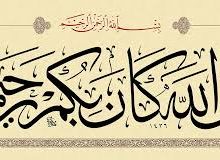 بسم الله الرحمن الرحيم
الله كان بكم رحي